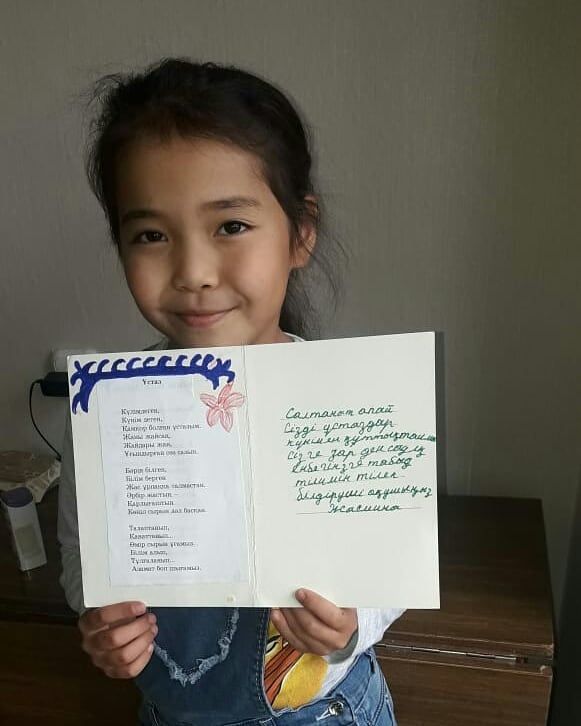 Ұстаз
Күлімдеген,
Күнім деген,
Қамқор болған ұстазым.
Жаны жайсаң,
Жайдары жан,
Ұғындырған ой салып.
Бәрін білген,
Білім берген
Жас ұрпаққа талмастан.
Әрбір жастың –
Қарлығаштың
Көңіл сырын дөп басқан.
Талаптанып,
Қанаттанып...
Өмір сырын ұғамыз.
Білім алып,
Тұлғаланып...
Азамат боп шығамыз.
Салтанат апай
Сізді ұстаздар
күнімен құттықтаймын
Сізге зор денсаулық
Еңбегіңізге табыс
тілимін тілек
білдіруші оқушыңыз
Жасмина